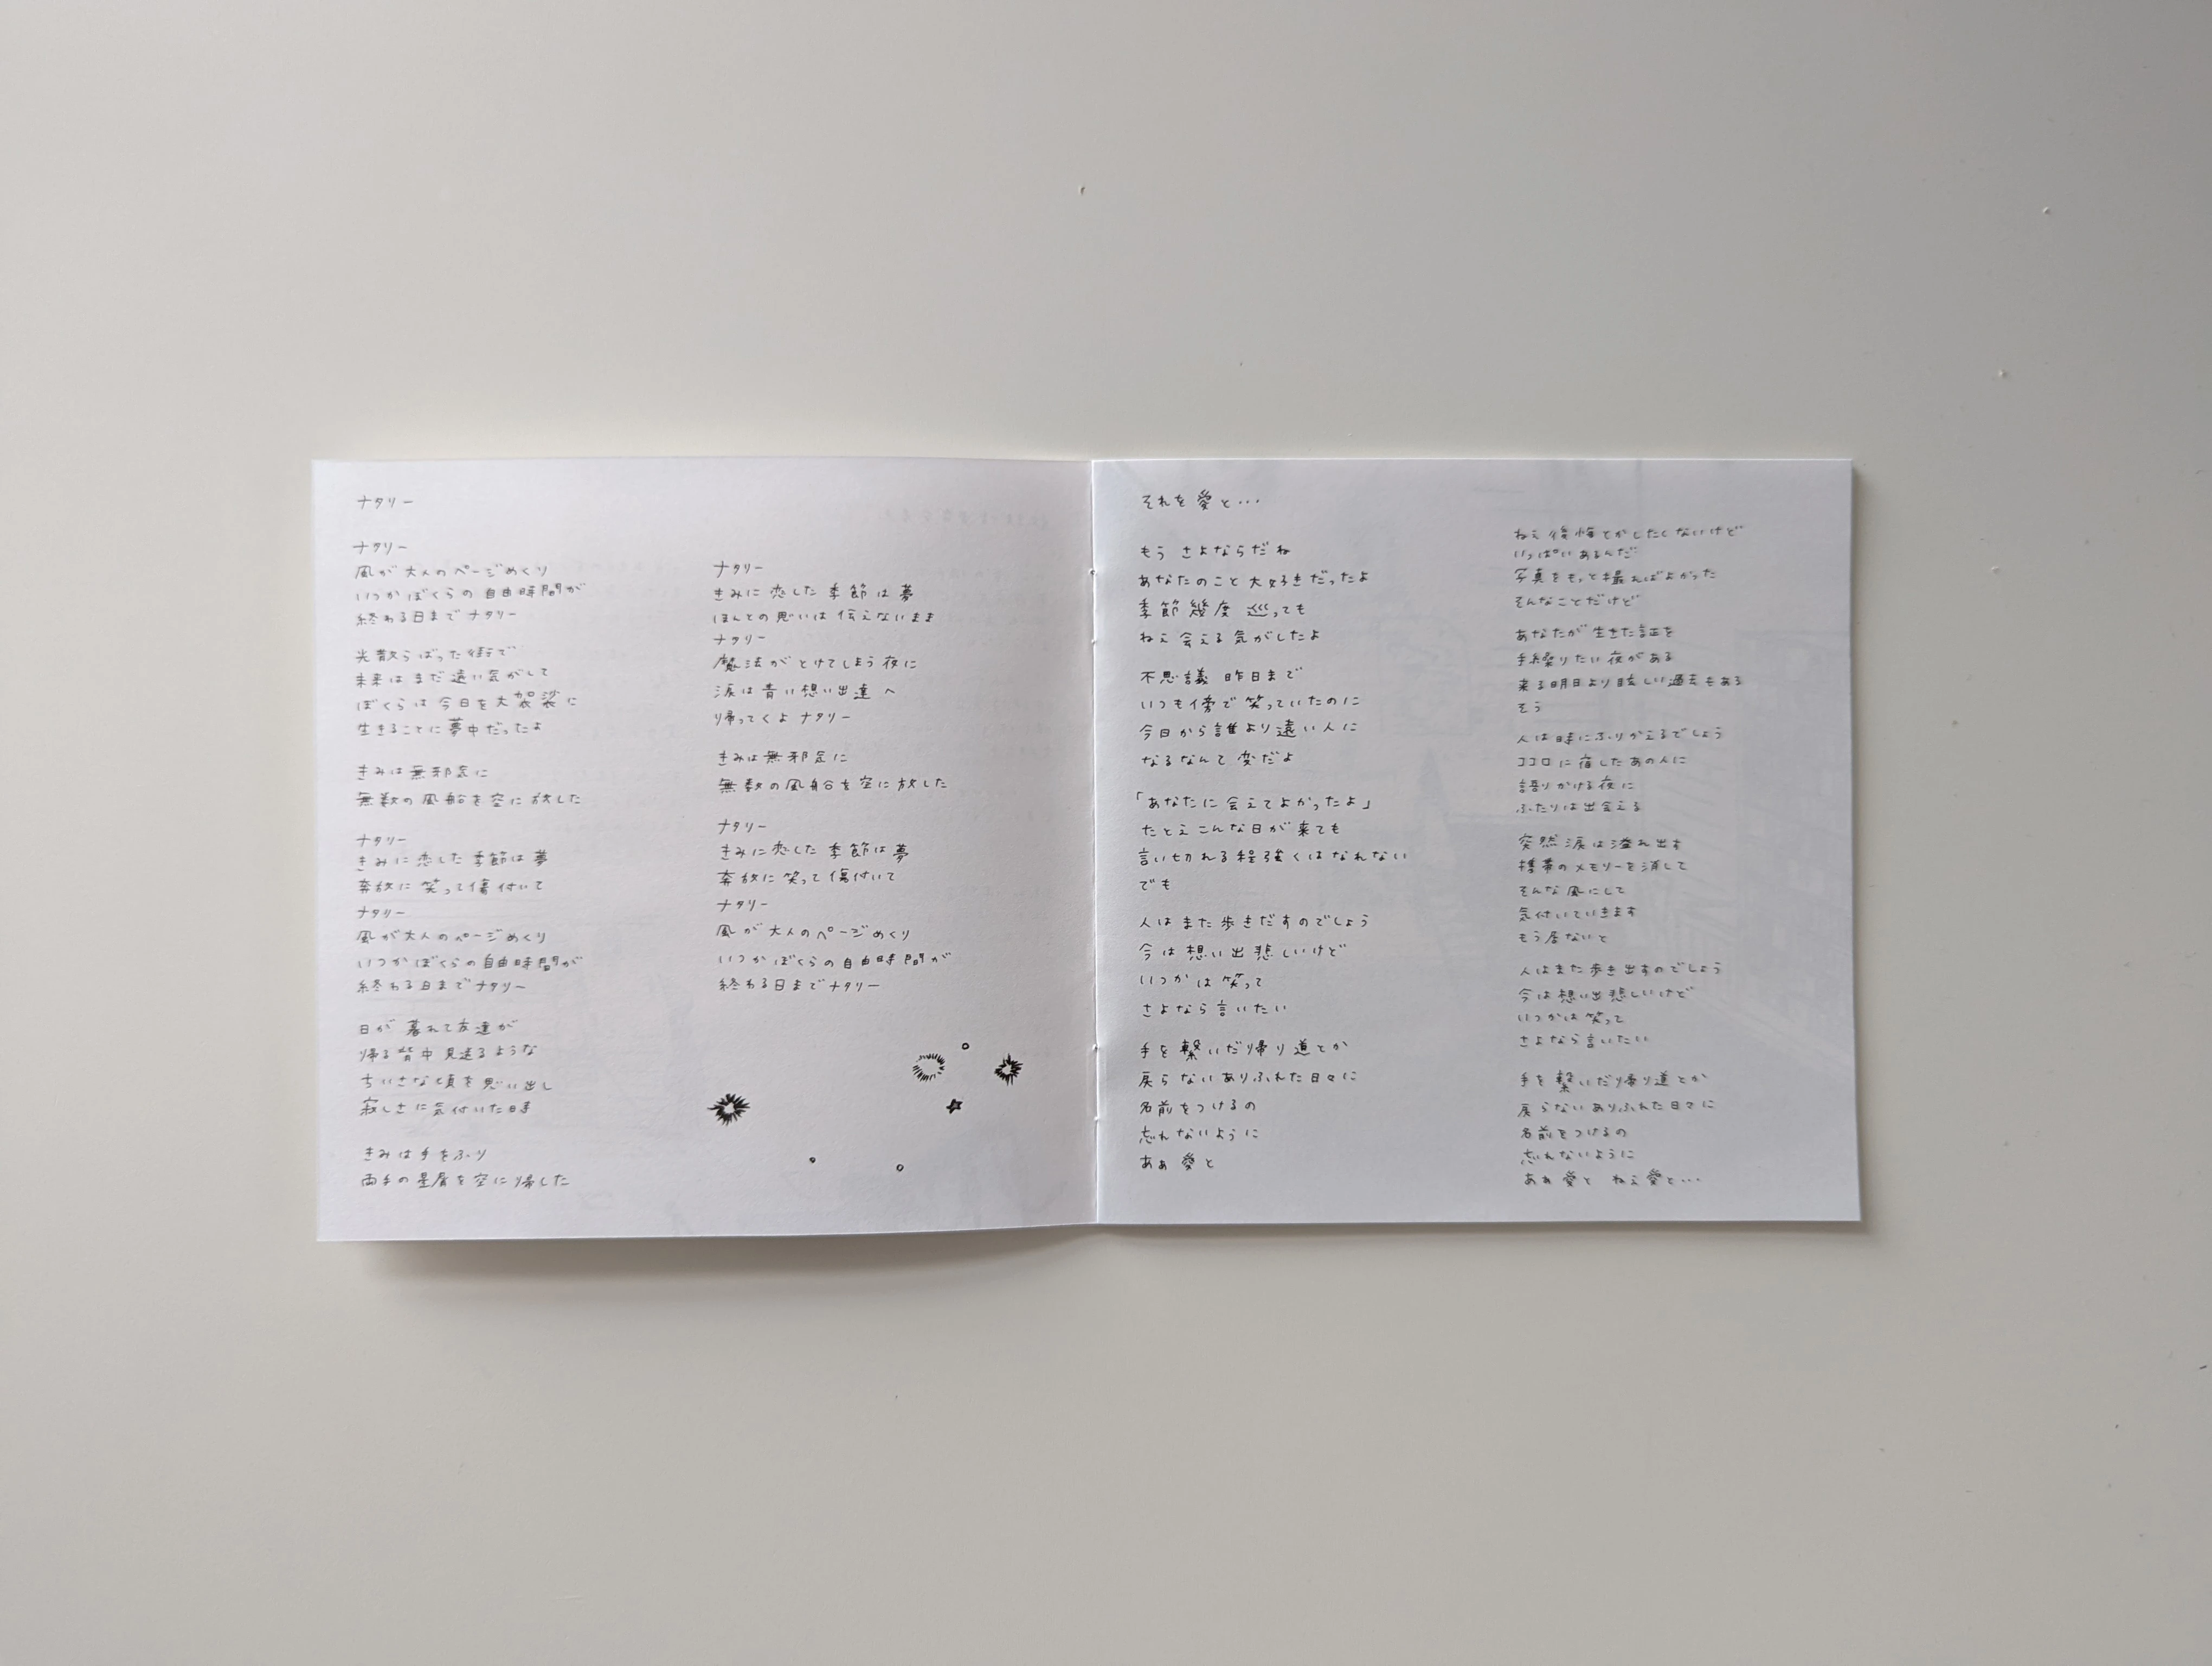 ナタリー
ナタリー
風が大人のページめくり
いつかぼくらの自由時間が
終わる日までナタリー
光散らばった街で
未来はまだ遠い気がして
ぼくらは今日を大袈裟に
生きることに夢中だったよ
きみは無邪気に
無数の風船を空に放した
ナタリー
きみに恋した季節は夢
奔放に笑って傷付いて
ナタリー
風が大人のページめくり
いつかぼくらの自由時間が
終わる日までナタリー
日が暮れて友達が
帰る背中見送るような
ちいさな頃を思い出し
寂しさに気付いた時
きみは手をふり
両手の星屑を空に帰した
ナタリー
きみに恋した季節は夢
ほんとの思いは伝えないまま
ナタリー
魔法がとけてしまう夜に
涙は青い想い出達へ
帰ってくよナタリー
きみは無邪気に
無数の風船を空に放した
ナタリー
きみに恋した季節は夢
奔放に笑って傷付いて
ナタリー
風が大人のページめくり
いつかぼくらの自由時間が
終わる日までナタリー
それを愛と…
もう さよならだね
あなたのこと大好きだったよ
季節幾度 巡っても
ねぇ会える気がしたよ
不思議 昨日まで
いつも傍で笑っていたのに
今日から誰より遠い人に
なるなんて変だよ
「あなたに会えてよかったよ」
たとえこんな日が来ても
言い切れる程強くはなれない
でも
人はまた歩きだすのでしょう
今は想い出悲しいけど
いつかは笑って
さよなら言いたい
手を繋いだ帰り道とか
戻らないありふれた日々に
名前をつけるの
忘れないように
あぁ 愛と
ねぇ後悔とかしたくないけど
いっぱいあるんだ
写真をもっと撮ればよかった
そんなことだけど
あなたが生きた証を
手繰りたい夜がある
来る明日より眩しい過去もある
そう
人は時にふりかえるでしょう
ココロに宿したあの人に
語りかける夜に
ふたりは出会える
突然涙は溢れ出す
携帯のメモリーを消して
そんな風にして
気付いていきます
もう居ないと
人はまた歩き出すのでしょう
今は想い出悲しいけど
いつかは笑って
さよなら言いたい
手を繋いだ帰り道とか
戻らないありふれた日々に
名前をつけるの
忘れないように
あぁ 愛と ねぇ愛と…